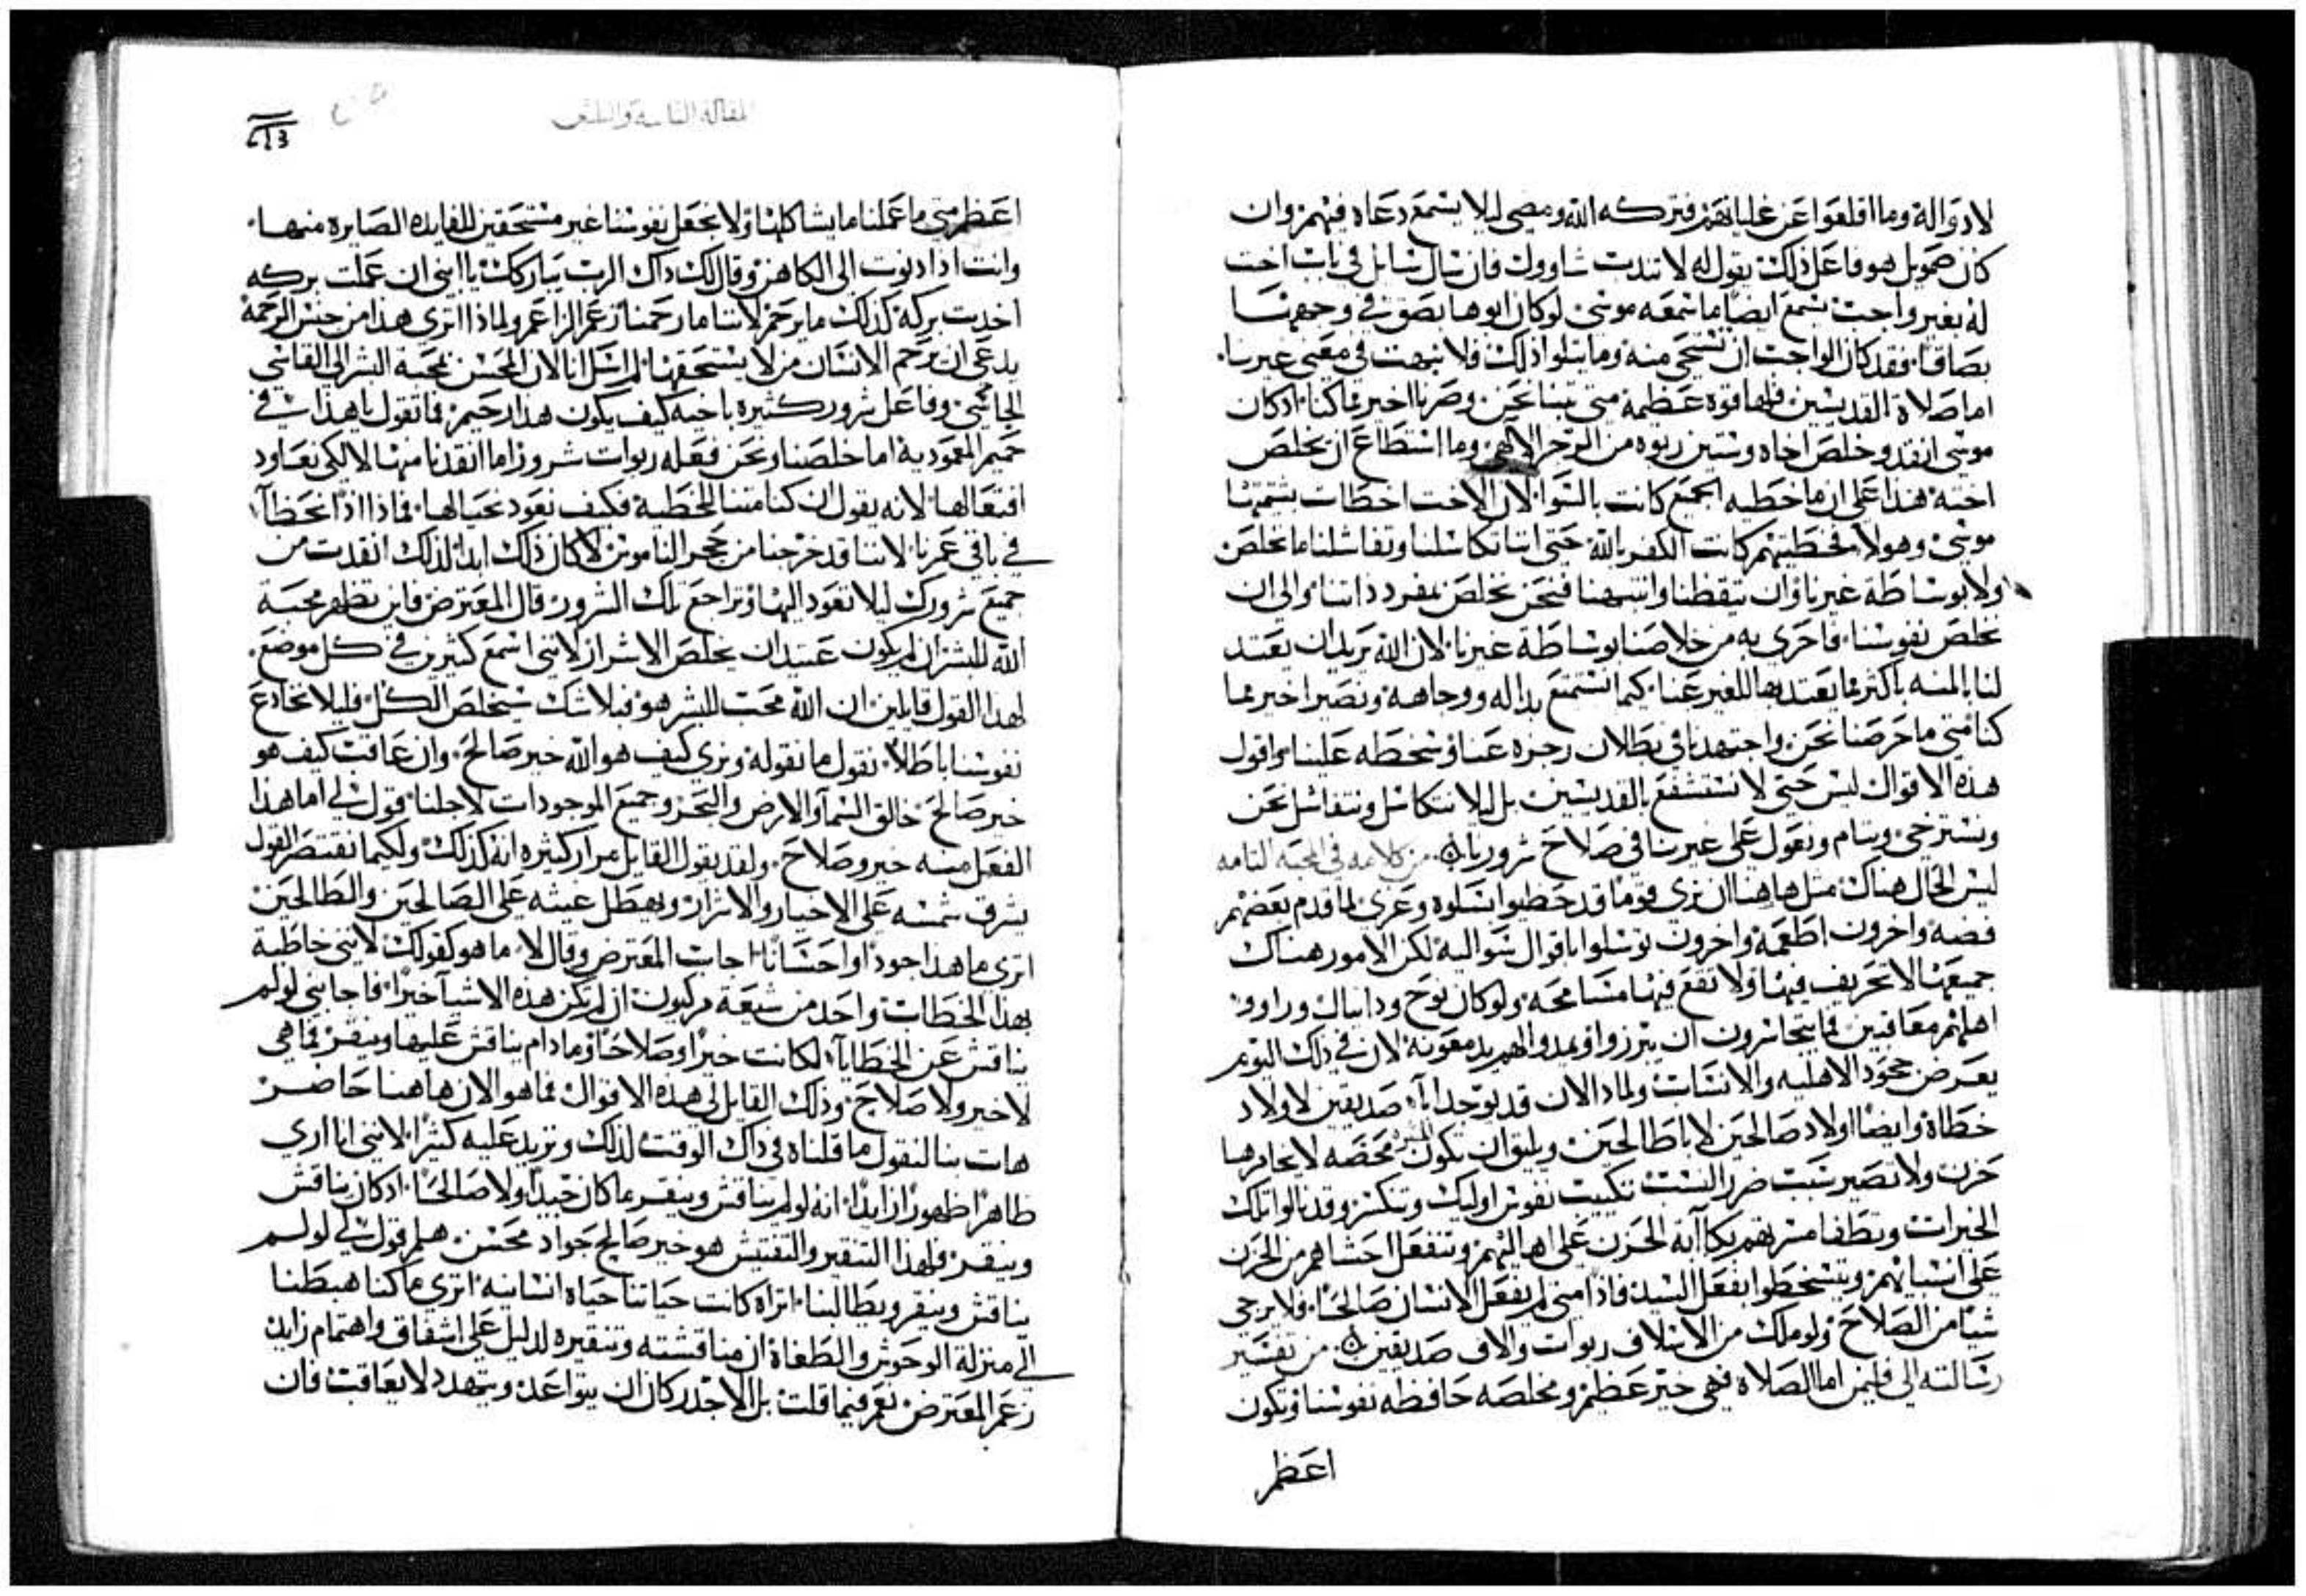 لادواله وما اقلعوا عن غليانهم فتركه الله ومضى ليلا يسمع دعاه فيهم وان
كان صمويل هو فاعل ذلك يقول له لا تندب شاوول فان سال سايل في باب اخت
له بغير واجب يسمع ايضا ما سمعه موسى لو كان ابوها بصق في وجهها
بصاقا فقد كان الواجب ان تستحي منه وما يتلوا ذلك فلا نبهت في معنى غيرنا
اما صلاة القديسين فلها قوة عظيمة متى تبنا نحن وصرنا اخير مما كنا اذ كان
موسى انقد وخلص اخاه وستين ربوه من الرجز الالهي وما استطاع ان يخلص
اخته هذا على ان ما خطيه الجميع كانت بالسوا لان الاخت اخطات بشتمتها
موسى وهولا فخطيتهم كانت الكفر بالله حتى اننا تكاسلنا وتفاشلنا ما نخلص
ولا بوساطة غيرنا وان تيقظنا وانتبهنا فنحن نخلص بمفرد ذاتنا والى ان
نخلص نفوسنا فاحرى به من خلاصنا بوساطة غيرنا لان الله يريد ان يعتد
لنا بالمنه باكثر مما يعتد بها للغير عنا كيما نستمتع بداله ووجاهة ونصير اخير مما
كنا متى ما حرصنا نحن واجتهدنا في بطلان رجزه عنا وسخطه علينا واقول
هذه الاقوال ليس حتى لا نستشفع بالقديسين بل ليلا نتكاسل ونتفاشل نحن
ونسترخي وننام ونعول على غيرنا في صلاح شرورنا من كلامه في المحبه التامه
ليس الحال هناك مثل هاهنا ان نرى قوما قد حظيوا بسلوه وعزى لما قدم بعضهم
فضه واخرون اطعمة واخرون توسلوا باقوال سواليه لكن الامور هناك
جميعها لا تحريف فيها ولا تقع فيها مسامحه ولو كان نوح ودانيال وراوا
اهلهم معاقبين فما يتجاسرون ان يبرزوا ويمدوا لهم يد معونة لان في ذلك اليوم
يعرض جحود الاهليه والانساب ولماذا لان قد يوجد ابآ صديقين لاولاد
خطاة وايضا اولاد صالحين لابا طالحين ويليق ان تكون محضه لا يخامرها
حزن ولا تصير سبب ضرر السبت تكبيت نفوس اوليك وتنكسر وقد نالوا تلك
الخيرات وتطفا مسرتهم بكاآبة الحزن على اهاليهم وتنفعل احشاهم من الحزن
على انسبايهم ويتسخطوا بفعل السيد فاذا متى لم يفعل الانسان صالحا فلا يرجى
شيا من الصلاح ولو ملك من الاسلاف ربوات والاف صديقين من تفسير
رسالته الى فليمن اما الصلاه فهي خير عظيم ومخلصه حافظه نفوسنا وتكون
اعظم
المقالة الثامنة والثلثون
اعظم متى ما عملنا ما يشاكلها ولا نجعل نفوسنا غير مستحقين للفايده الصايرة منها
وانت اذا دنوت الى الكاهن وقال لك ذاك الرب يباركك يا ابني ان عملت بركه
اخدت بركة كذلك ما يرحم لاننا ما رحمنا زعم الزاعم ولماذا اترى هذا من جنس الرحمة
يدعى ان يرحم الانسان من لا يستحقها لم اسل انا الان المحسن بمحبة البشر الى القاسي
الجاسي وفاعل شرور كثيره باخيه كيف يكون هذا رحيم فما تقول يا هذا في
حميم المعمودية اما خلصنا ونحن فعله ربوات شرور اما انقدنا منها لا لكي نعاود
افتعالها لانه يقول ان كنا متنا للخطية فكيف نعود نحيا لها فماذا اذا نخطآ
في باقي عمرنا لاننا قد خرجنا من حجر الناموس لا كان ذلك ابدا لذلك انقدت من
جميع شرورك ليلا تعود اليها وتراجع تلك الشرور قال المعترض فاين تظهر محبة
الله للبشر ان لم يكون عتيد ان يخلص الاشرار لانني اسمع كثيرين في كل موضع
لهذا القول قايلين ان الله محب للبشر هو فبلا شك سيخلص الكل فليلا نخادع
نفوسنا باطلا نقول ما نقوله ونرى كيف هو الله خير صالح وان عاقب كيف هو
خير صالح خالق السمآ والارض والبحر وجميع الموجودات لاجلنا قول لي اما هذا
الفعل منه خير وصلاح ولقد يقول القايل مرار كثيره انه كذلك ولكيما نقتصر القول
يشرق شمسه على الاخيار والاشرار ويهطل غيثه على الصالحين والطالحين
اترى ما هذا جودا واحسانا اجاب المعترض وقال لا ما هو كقولك لانني خاطبة
بهذا الخطاب واحد من شيعة مركيون ان لم يكن هذه الاشيا خيرا فاجابني لو لم
يناقش عن الخطايآ لكانت خيرا وصلاحا وما دام يناقش عليها وينقر فما هي
لا خير ولا صلاح وذلك القايل لي هذه الاقوال فما هو الان هاهنا حاضر
هات بنا لنقول ما قلناه في ذاك الوقت لذلك ونزيد عليه كثيرا لانني انا ارى
ظاهرا ظهورا زايدا انه لو لم يناقش وينقر ما كان جيدا ولا صالحا اذ كان يناقش
وينقر فلهذا التنقير والتفتيش هو خير صالح جواد محسن هلم قول لي لو لم
يناقش وينقر ويطالبنا اتراه كانت حياتنا حياة انسانيه اترى ما كنا هبطنا
الى منزلة الوحوش والطغاة ان مناقشته وتنقيره لدليل على اشفاق واهتمام زايد
زعم المعترض نعم فيما قلت بل الاجدر كان ان يتواعد ويتهدد لا يعاقب فان